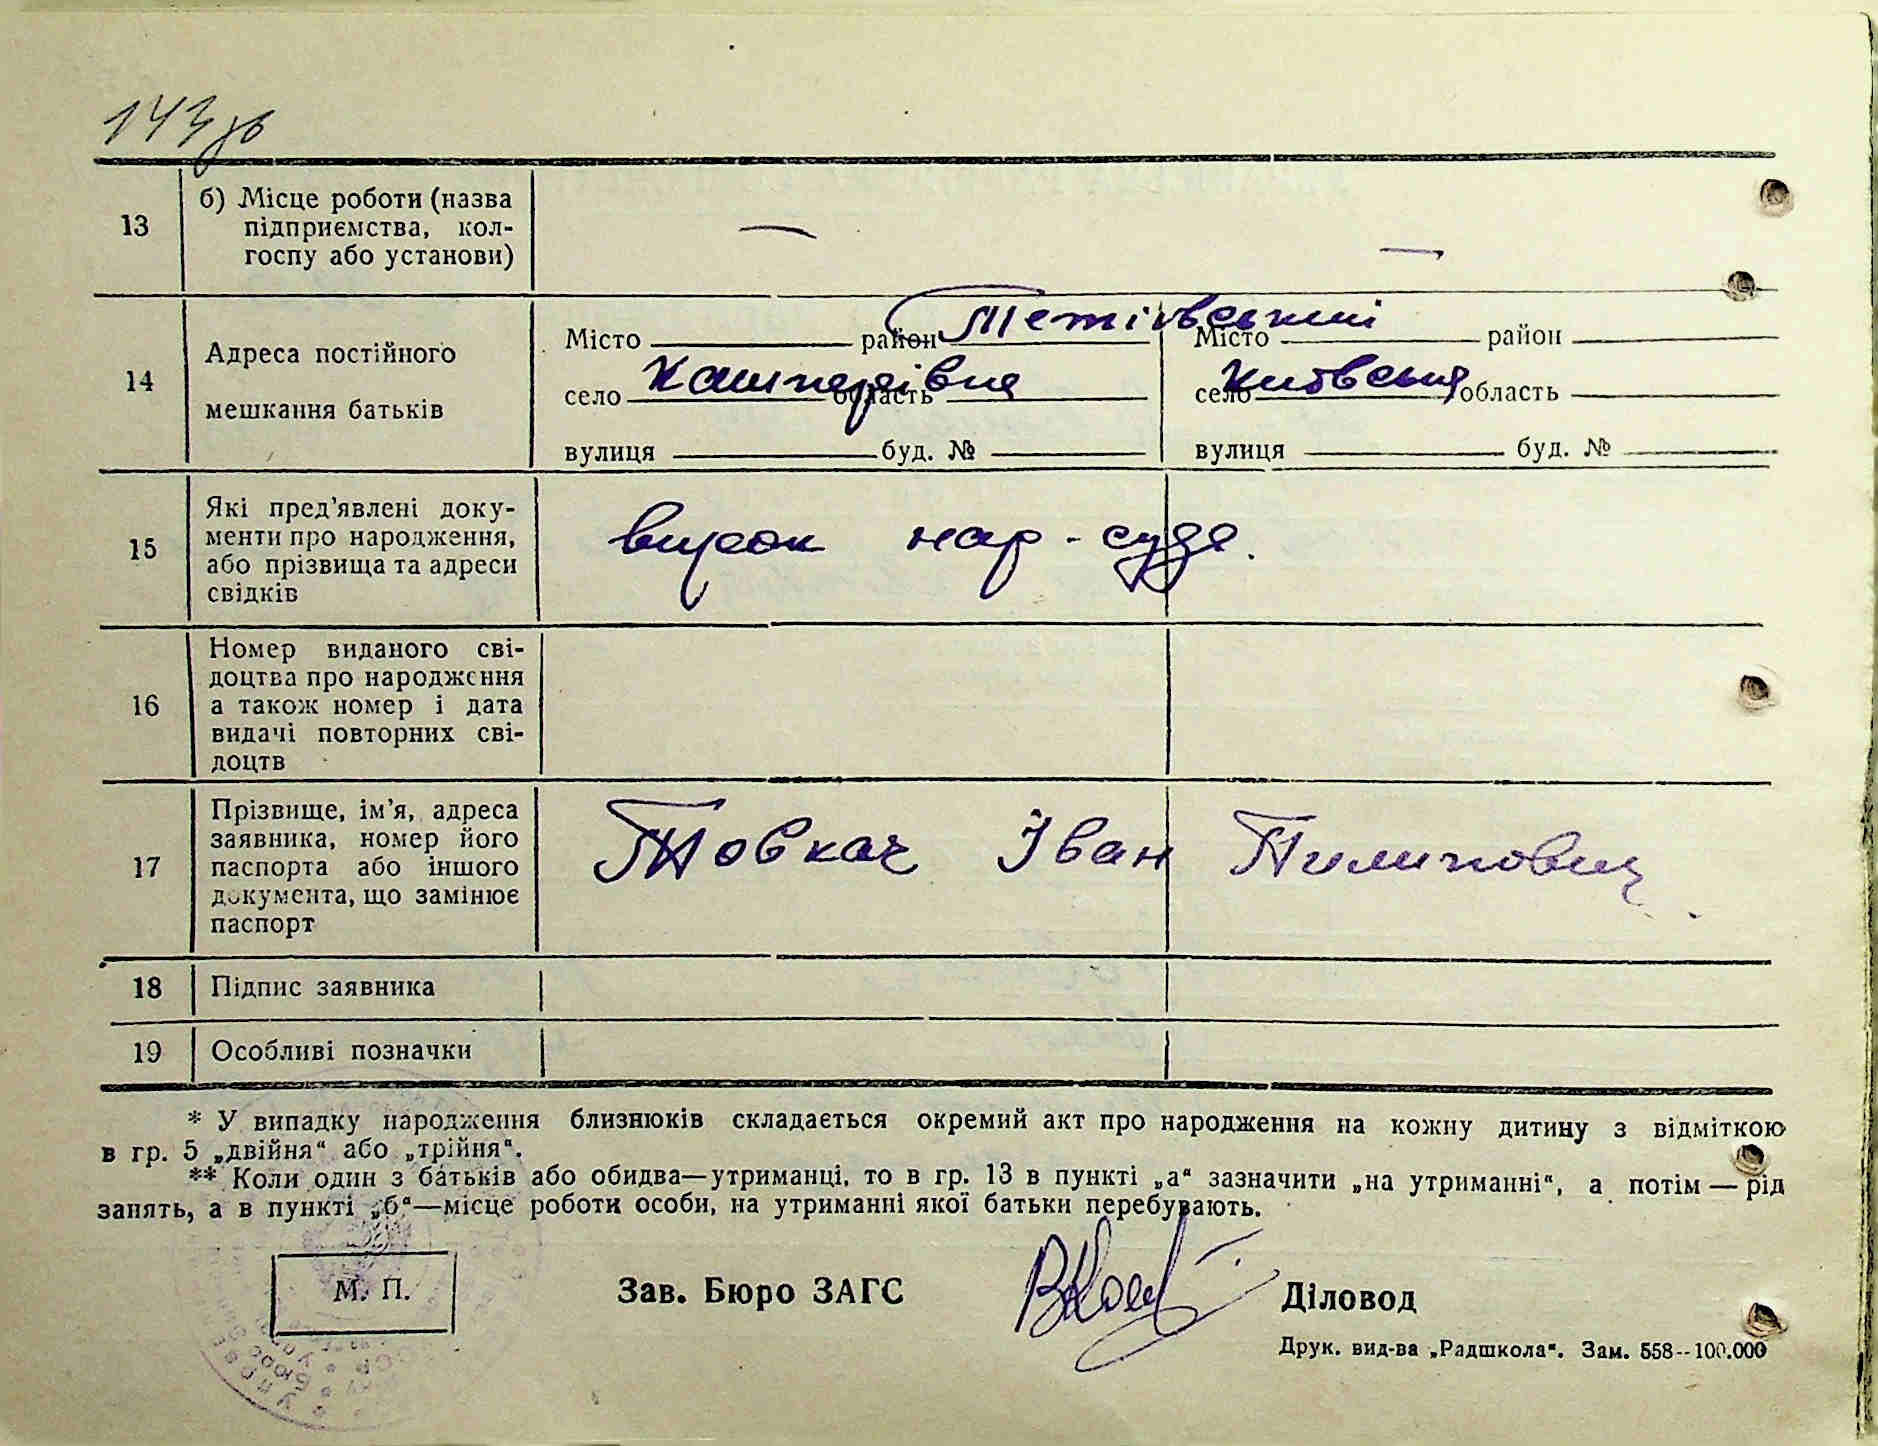 143 зв
13
б) Місце роботи (назва
підприємства, кол-
госпу або установи)
—
—
14
Адреса постійного
мешкання батьків
Місто район Тетіївський
село Кашперівка область
вулиця буд. №
Місто район
село Київська область
вулиця буд. №
15
Які пред'явлені доку-
менти про народження,
або прізвища та адреси
свідків
вирок нар-суда.
16
Номер виданого сві-
доцтва про народження
а також номер і дата
видачі повторних сві-
доцтв
17
Прізвище, ім'я, адреса
заявника, номер його
паспорта або іншого
документа, що замінює
паспорт
Товкач Іван Пилипович
18
Підпис заявника
19
Особливі позначки
* У випадку народження близнюків складається окремий акт про народження на кожну дитину з відміткою
в гр. 5 „двійня“ або „трійня“.
** Коли один з батьків або обидва—утриманці, то в гр. 13 в пункті „а“ зазначити „на утриманні“, а потім — рід
занять, а в пункті „б“—місце роботи особи, на утриманні якої батьки перебувають.
М. П.
Зав. Бюро ЗАГС
Діловод
Друк. вид-ва „Радшкола“. Зам. 558--100.000